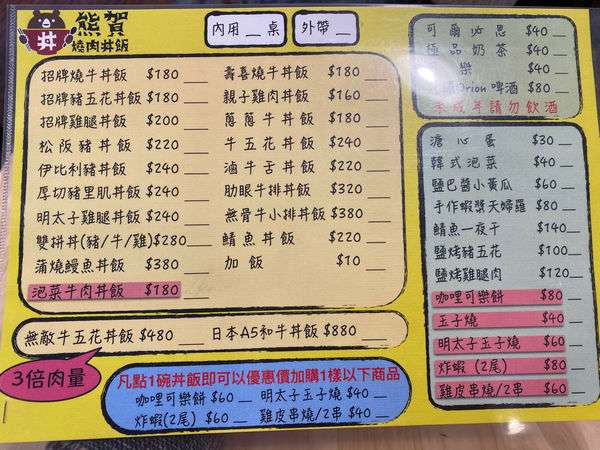 丼
熊賀
燒肉丼飯
內用__桌
外帶__
招牌燒牛丼飯 $180
招牌豬五花丼飯 $180
招牌雞腿丼飯 $200
松阪豬丼飯 $220
伊比利豬丼飯 $240
厚切豬里肌丼飯 $240
明太子雞腿丼飯 $240
雙拼丼(豬/牛/雞)$280
蒲燒鰻魚丼飯 $380
泡菜牛肉丼飯 $180
壽喜燒牛丼飯 $180
親子雞肉丼飯 $160
蔥蔥牛丼飯 $180
牛五花丼飯 $240
滷牛舌丼飯 $220
肋眼牛排丼飯 $320
無骨牛小排丼飯 $380
鯖魚丼飯 $220
加飯 $10
無敵牛五花丼飯 $480
日本A5和牛丼飯 $880
3倍肉量
凡點1碗丼飯即可以優惠價加購1樣以下商品
咖哩可樂餅 $60 明太子玉子燒 $40
炸蝦(2尾) $60 雞皮串燒/2串 $40
可爾必思 $40
極品奶茶 $40
樂 $40
Orion啤酒 $80
未成年請勿飲酒
溏心蛋 $30
韓式泡菜 $40
鹽巴醬小黃瓜 $60
手作蝦漿天婦羅 $80
鯖魚一夜干 $140
鹽烤豬五花 $100
鹽烤雞腿肉 $120
咖哩可樂餅 $80
玉子燒 $40
明太子玉子燒 $60
炸蝦 (2尾) $80
雞皮串燒/2串 $60